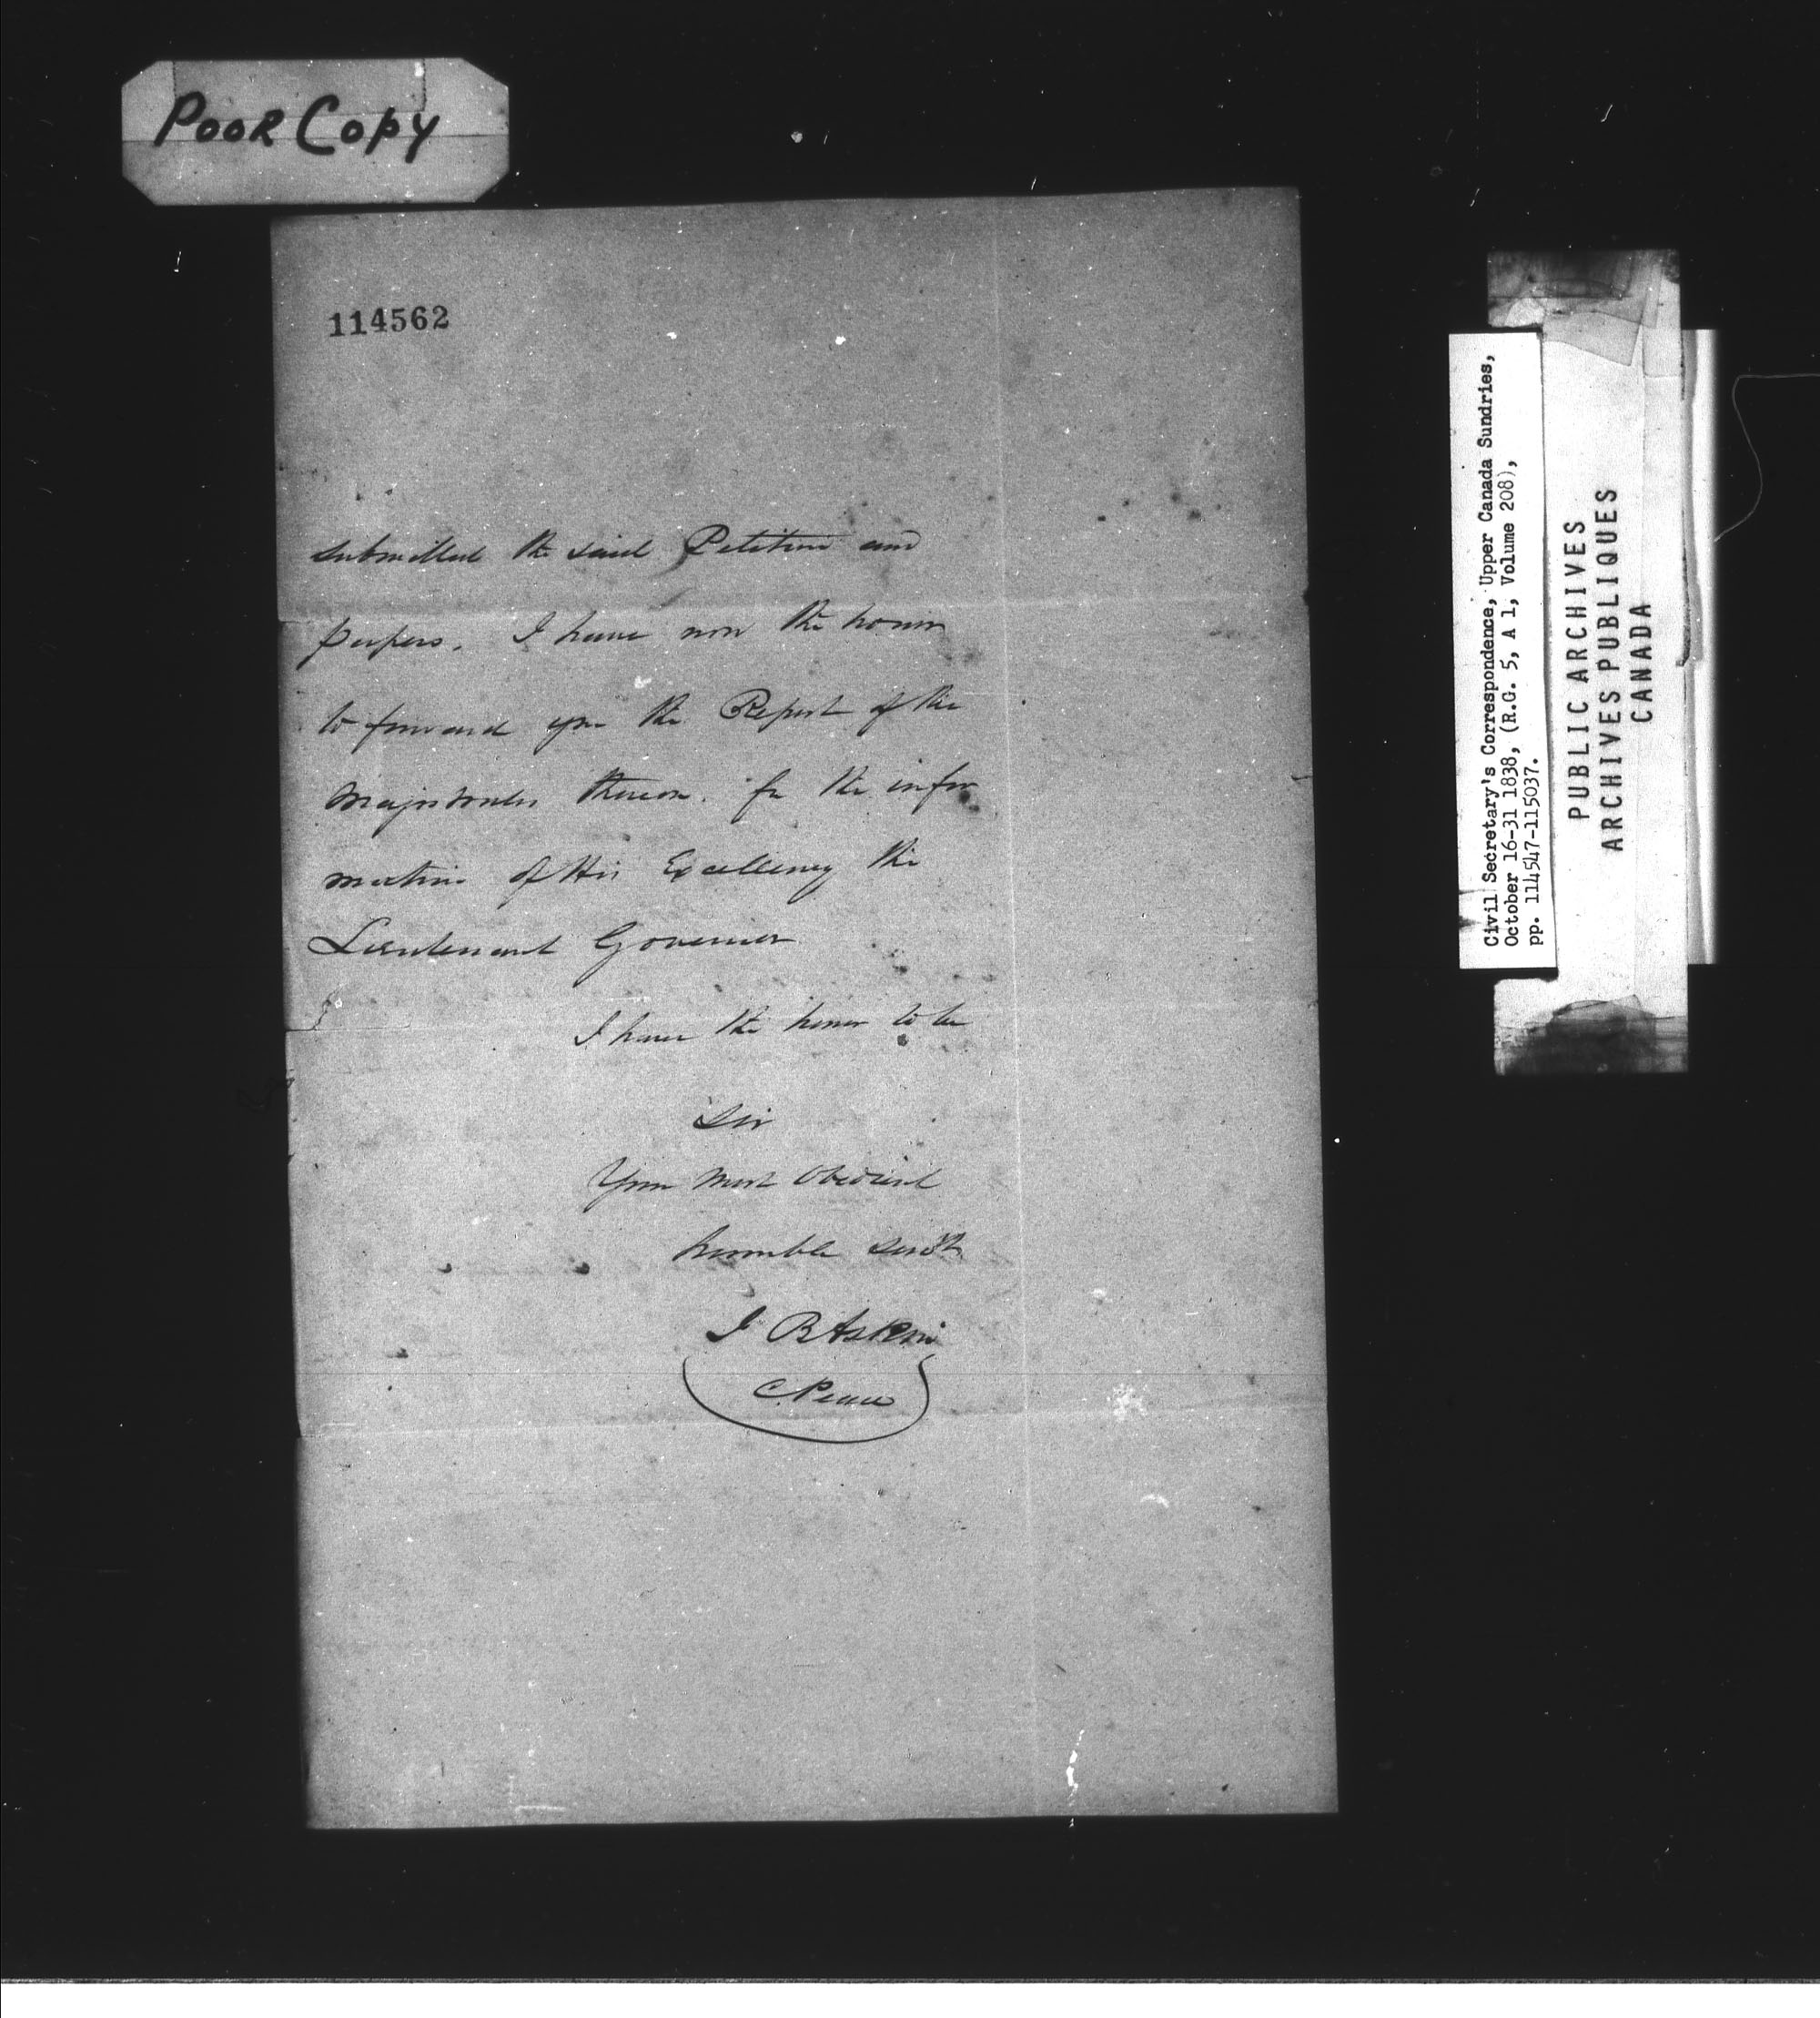 POOR COPY
114562
submitted the said Petition and
papers. I have now the honor
to forward you the Report of the
Magistrates thereon. for the infor
mation of His Excellency the
Lieutenant Governor
I have the honor to be
Sir
Your Most Obedient
humble Servt
J B Askin
C. Peace
Civil Secretary's Correspondence, Upper Canada Sundries,
October 16-31 1838, (R.G. 5, A 1, Volume 208),
pp. 114547-115037.
PUBLIC ARCHIVES
ARCHIVES PUBLIQUES
CANADA